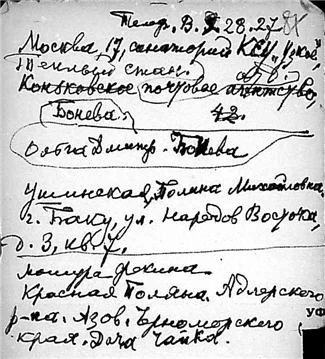 Телеф. В. 28.27
Москва, 17, санаторий КСУ "Узкое",
Теплый стан.
Коньковское почтовое агентство,
Бонева. 42.
Ольга Дмитр. Бонева
Ушинская Полина Михайловна.
г. Баку, ул. Народов Востока,
д. 3, кв. 7.
Красная Поляна. Адлерского
р-на. Азов. Черноморского
края. Дача
УФ